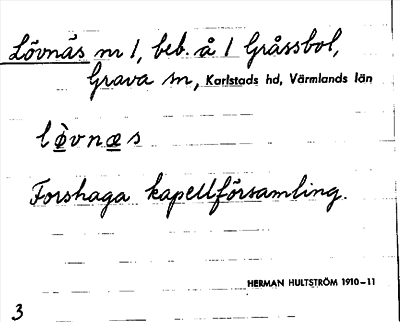 Lövnäs nr 1, beb. å 1 Gråssbol,
Grava sn, Karlstads hd, Värmlands län
lö̀vnæs
Forshaga kapellförsamling.
HERMAN HULTSTRÖM 1910–11
3